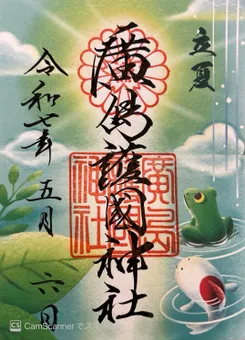 立夏
廣島護國神社
令和七年 五月 六日
廣島
護國
神社
CS CamScanner でス